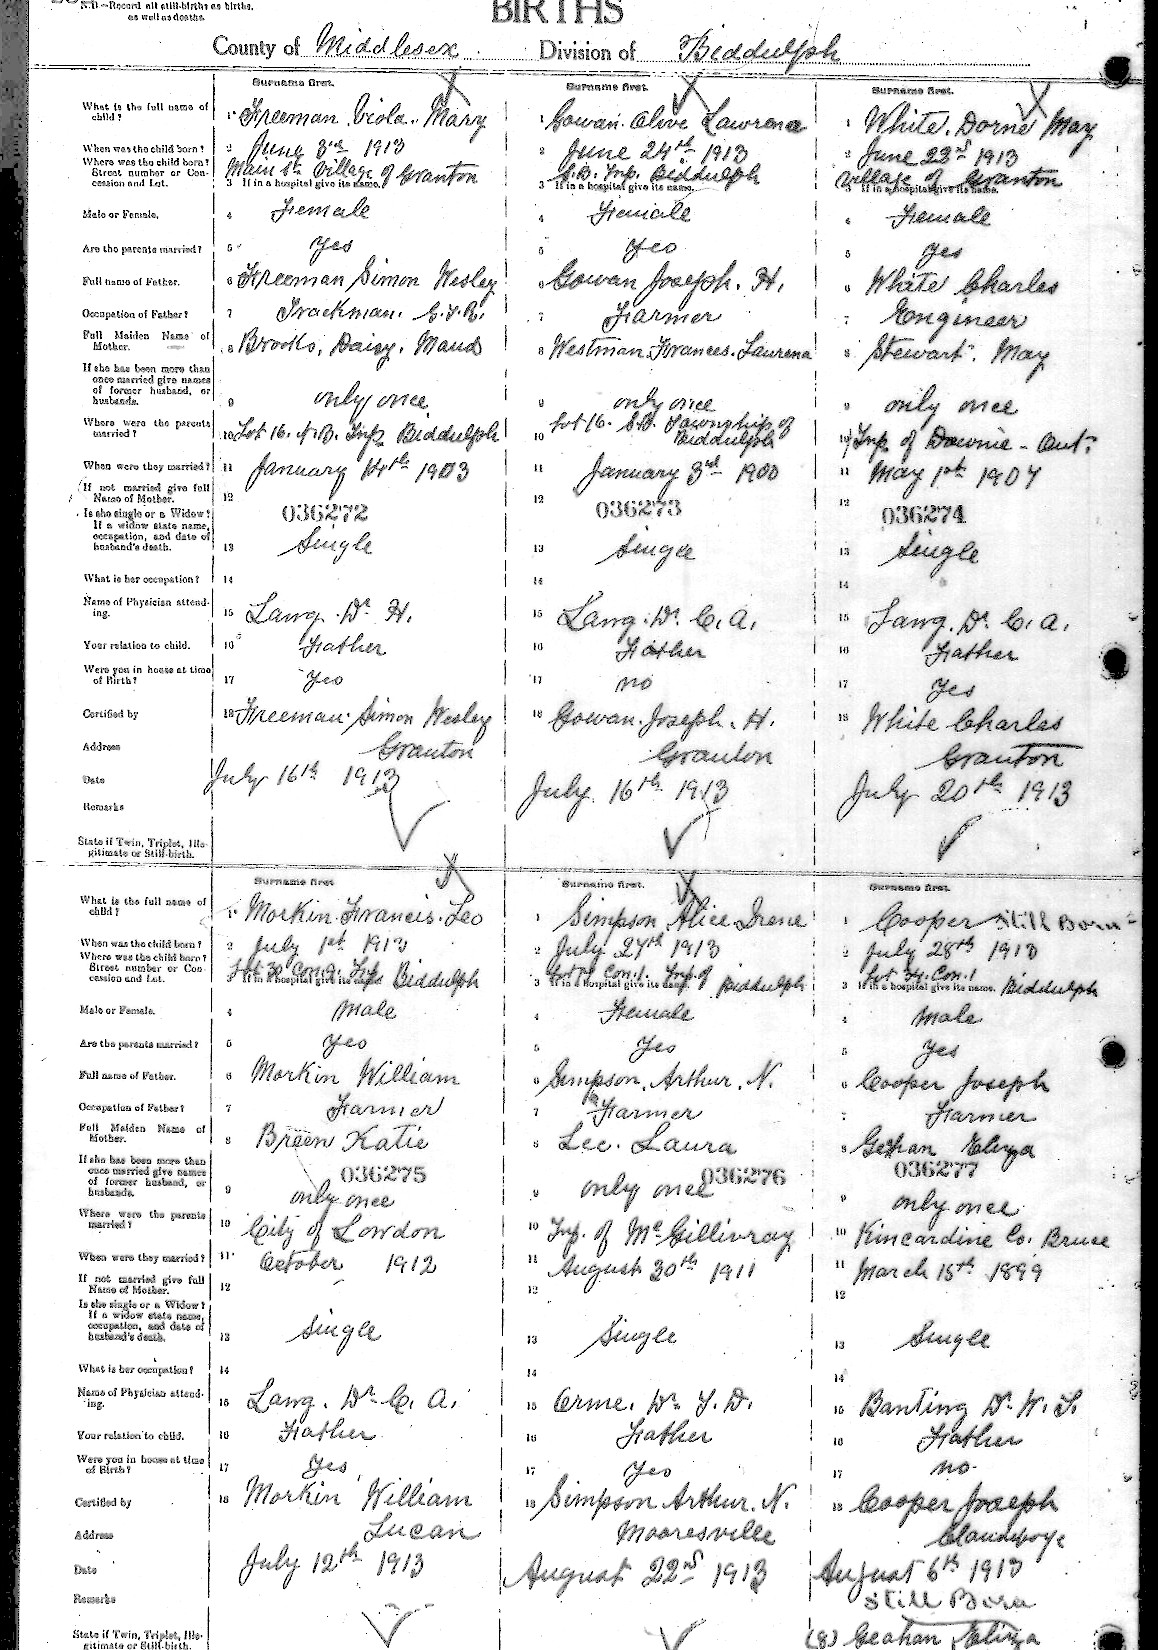 N.B.—Record all still-births as births,
as well as deaths.
BIRTHS
County of Middlesex Division of Biddulph
Surname first. Surname first. Surname first.
What is the full name of child? 1 Freeman Viola Mary 1 Gowan Olive Lawrena 1 White Dorne May
When was the child born? 2 June 3rd 1913 2 June 24th 1913 2 June 23rd 1913
Where was the child born? Street number or Concession and Lot. 3 If in a hospital give its name. Main St. Village of Granton 3 If in a hospital give its name. S.B. Twp. Biddulph 3 If in a hospital give its name. Village of Granton
Male or Female. 4 Female 4 Female 4 Female
Are the parents married? 5 Yes 5 Yes 5 Yes
Full name of Father. 6 Freeman Simon Wesley 6 Gowan Joseph. H. 6 White Charles
Occupation of Father? 7 Trackman. G.T.R. 7 Farmer 7 Engineer
Full Maiden Name of Mother. 8 Brooks, Daisy. Maud 8 Westman. Frances. Laurena 8 Stewart. May
If she has been more than once married give names of former husband, or husbands. 9 only once 9 only once 9 only once
Where were the parents married? 10 Lot 16. N.B. Twp Biddulph 10 Lot 16. S.B. Township of Biddulph 10 Twp. of Downie - Ont.
When were they married? 11 January 14th 1903 11 January 3rd 1900 11 May 1st 1907
If not married give full Name of Mother. 12 12 12
036272 036273 036274
Is she single or a Widow? If a widow state name, occupation, and date of husband's death. 13 Single 13 Single 13 Single
What is her occupation? 14 14 14
Name of Physician attending. 15 Lang. Dr. H. 15 Lang. Dr. C. A. 15 Lang. Dr. C. A.
Your relation to child. 16 Father 16 Father 16 Father
Were you in house at time of Birth? 17 Yes 17 no 17 Yes
Certified by 18 Freeman Simon Wesley 18 Gowan. Joseph. H. 18 White Charles
Address Granton Granton Granton
Date July 16th 1913 July 16th 1913 July 20th 1913
Remarks
State if Twin, Triplet, Illegitimate or Still-birth.
Surname first Surname first. Surname first.
What is the full name of child? 1 Morkin Francis. Leo 1 Simpson Alice Irene 1 Cooper Still Born
When was the child born? 2 July 1st 1913 2 July 27th 1913 2 July 28th 1913
Where was the child born? Street number or Concession and Lot. 3 If in a hospital give its name. Lot 30 Con. Twp Biddulph 3 If in a hospital give its name. Lot Con. 1. Twp. of Biddulph 3 If in a hospital give its name. Lot Con. 1 Biddulph
Male or Female. 4 Male 4 Female 4 Male
Are the parents married? 5 Yes 5 Yes 5 Yes
Full name of Father. 6 Morkin William 6 Simpson, Arthur. N. 6 Cooper Joseph
Occupation of Father? 7 Farmer 7 Farmer 7 Farmer
Full Maiden Name of Mother. 8 Breen Katie 8 Lee. Laura 8 Gehan Eliza
036275 036276 036277
If she has been more than once married give names of former husband, or husbands. 9 only once 9 only once 9 only once
Where were the parents married? 10 City of London 10 Twp. of McGillivray 10 Kincardine Co. Bruce
When were they married? 11 October 1912 11 August 30th 1911 11 March 15th 1899
If not married give full Name of Mother. 12 12 12
Is she single or a Widow? If a widow state name, occupation, and date of husband's death. 13 Single 13 Single 13 Single
What is her occupation? 14 14 14
Name of Physician attending. 15 Lang. Dr. C. A. 15 Orme. Dr. T. D. 15 Banting Dr. W. T.
Your relation to child. 16 Father 16 Father 16 Father
Were you in house at time of Birth? 17 Yes 17 Yes 17 no
Certified by 18 Morkin William 18 Simpson Arthur. N. 18 Cooper Joseph
Address Lucan Mooresville Clandeboye
Date July 12th 1913 August 22nd 1913 August 6th 1913
Remarks Still Born
State if Twin, Triplet, Illegitimate or Still-birth. (8) Geahan, Eliza